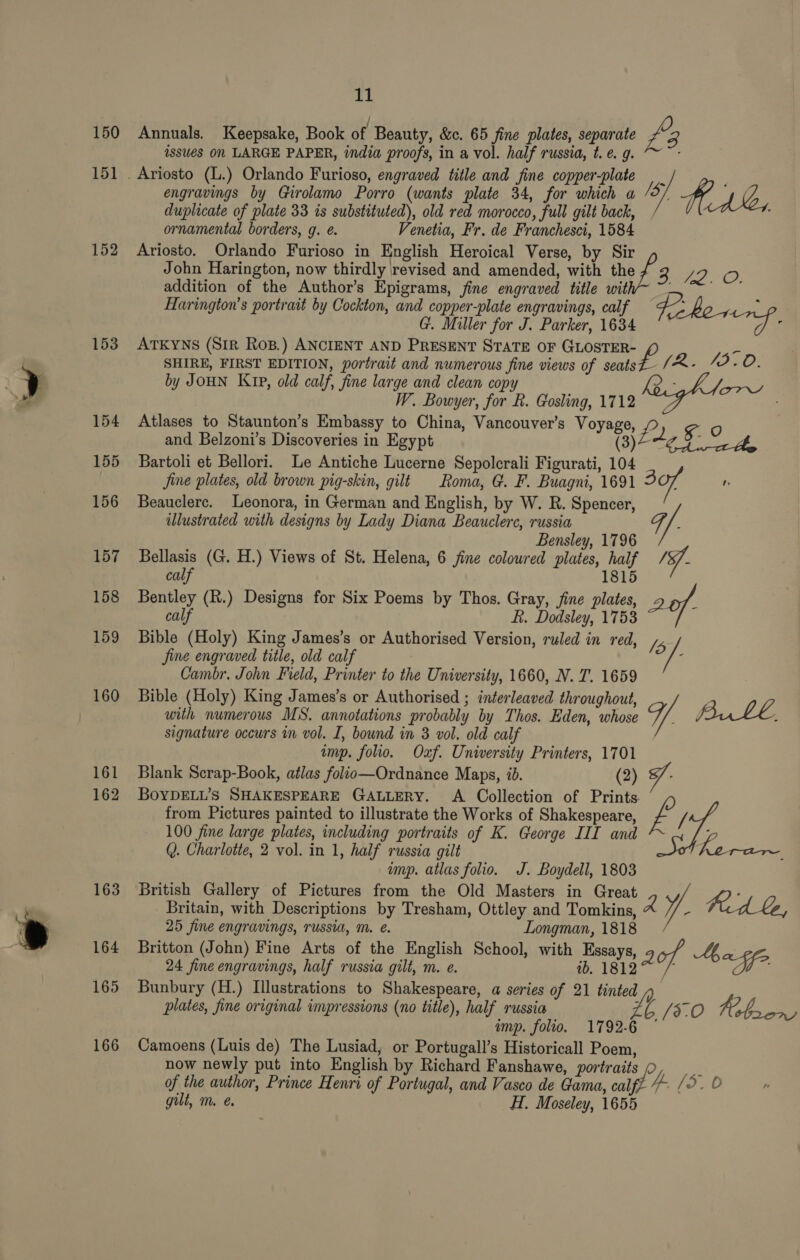 11
150 Annuals. Keepsake, Book of Beauty, &c. 65 fine plates, separate £3
issues on LARGE PAPER, india proofs, in a vol. half russia, t. e. g.
151 Ariosto (L.) Orlando Furioso, engraved title and fine copper-plate
engravings by Girolamo Porro (wants plate 34, for which a 15/.
duplicate of plate 33 is substituted), old red morocco, full gilt back,
ornamental borders, g. e. Venetia, Fr. de Franchesci, 1584
152 Ariosto. Orlando Furioso in English Heroical Verse, by Sir
John Harington, now thirdly revised and amended, with the £3. 12. 0.
addition of the Author's Epigrams, fine engraved title with
Harington's portrait by Cockton, and copper-plate engravings, calf
G. Miller for J. Parker, 1634
153 ATKYNS (SIR ROB.) ANCIENT AND PRESENT STATE OF GLOSTER-
SHIRE, FIRST EDITION, portrait and numerous fine views of seats £12. 15. 0.
by JOHN KIP, old calf, fine large and clean copy
W. Bowyer, for R. Gosling, 1712
154 Atlases to Staunton's Embassy to China, Vancouver's Voyage,
and Belzoni's Discoveries in Egypt (3)
155 Bartoli et Bellori. Le Antiche Lucerne Sepolcrali Figurati, 104
fine plates, old brown pig-skin, gilt Roma, G. F. Buagni, 1691 30/. "
156 Beauclerc. Leonora, in German and English, by W. R. Spencer,
illustrated with designs by Lady Diana Beauclerc, russia
Bensley, 1796
157 Bellasis (G. H.) Views of St. Helena, 6 fine coloured plates, half
calf 1815
158 Bentley (R.) Designs for Six Poems by Thos. Gray, fine plates, 20/.
calf R. Dodsley, 1753
159 Bible (Holy) King James's or Authorised Version, ruled in red, 15/.
fine engraved title, old calf
Cambr. John Field, Printer to the University, 1660, N. T. 1659
160 Bible (Holy) King James's or Authorised; interleaved throughout,
with numerous MS. annotations probably by Thos. Eden, whose Bull.
signature occurs in vol. I, bound in 3 vol. old calf
imp. folio. Oxf. University Printers, 1701
161 Blank Scrap-Book, atlas folio—Ordnance Maps, ib. (2)
162 BOYDELL'S SHAKESPEARE GALLERY. A Collection of Prints
from Pictures painted to illustrate the Works of Shakespeare,
100 fine large plates, including portraits of K. George III and
Q. Charlotte, 2 vol. in 1, half russia gilt Sotheran
imp. atlas folio. J. Boydell, 1803
163 British Gallery of Pictures from the Old Masters in Great
Britain, with Descriptions by Tresham, Ottley and Tomkins,
25 fine engravings, russia, m. e. Longman, 1818
164 Britton (John) Fine Arts of the English School, with Essays, 20/. Maggs
24 fine engravings, half russia gilt, m. e. ib. 1812
165 Bunbury (H.) Illustrations to Shakespeare, a series of 21 tinted
plates, fine original impressions (no title), half russia £6. 15. 0 Robson
imp. folio. 1792-6
166 Camoens (Luis de) The Lusiad, or Portugall's Historicall Poem,
now newly put into English by Richard Fanshawe, portraits
of the author, Prince Henri of Portugal, and Vasco de Gama, calf £4. 15. 0 "
gilt, m. e. H. Moseley, 1655